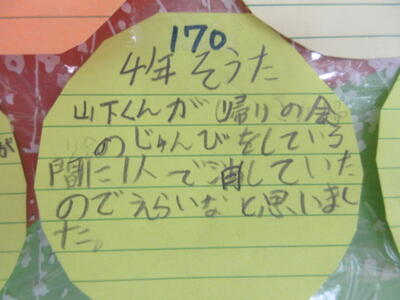 170
4年 そうた
山下くんが 帰りの会
のじゅんびをしている
間に1人で消していた
のでえらいなと思いまし
た。
が